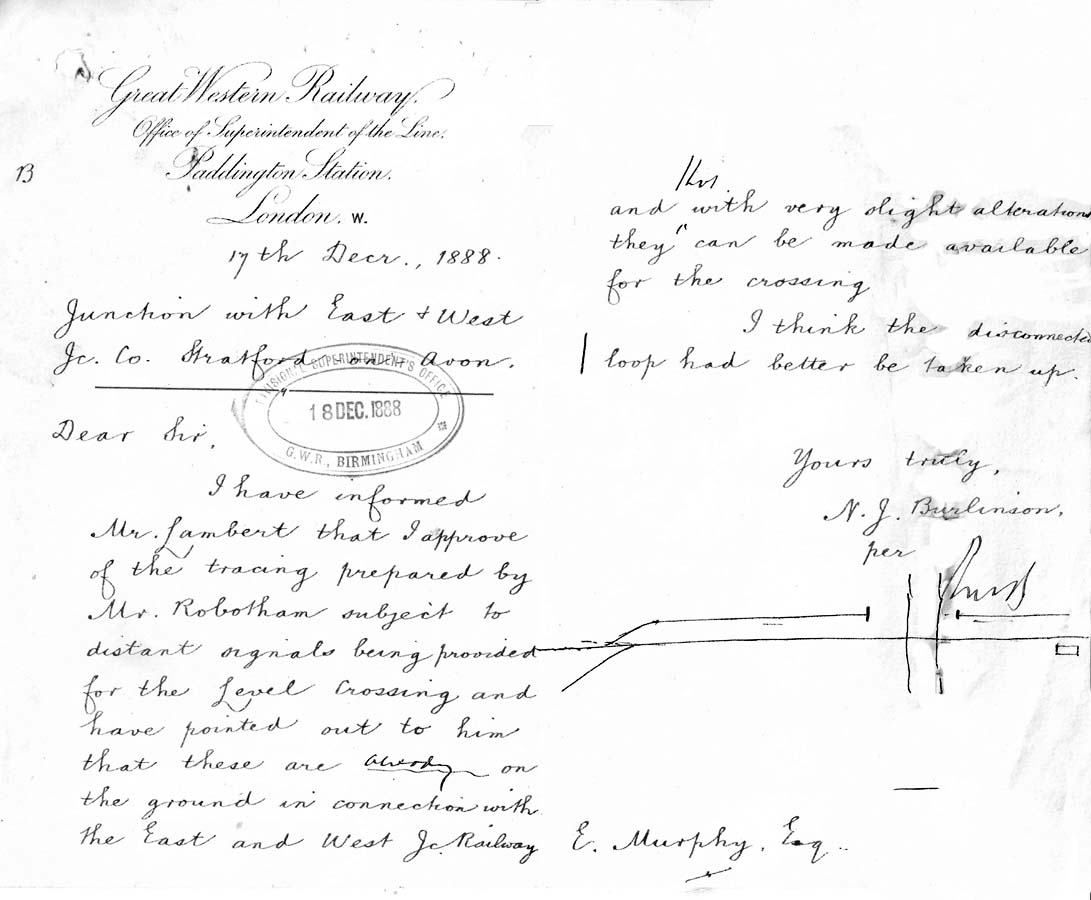 Great Western Railway.
Office of Superintendent of the Line.
Paddington Station.
London. W.
B
17th Decr., 1888.
Junction with East & West
Jc. Co. Stratford on Avon.
DIVISIONAL SUPERINTENDENT'S OFFICE
18 DEC. 1888
G.W.R, BIRMINGHAM
Dear Sir,
I have informed
Mr. Lambert that I approve
of the tracing prepared by
Mr. Robotham subject to
distant signals being provided
for the Level Crossing and
have pointed out to him
that these are already on
the ground in connection with
the East and West Jc. Railway
and with very slight alterations
they" can be made available
for the crossing
I think the disconnected
loop had better be taken up.
Yours truly,
N. J. Burlinson,
per
E. Murphy, Esq..